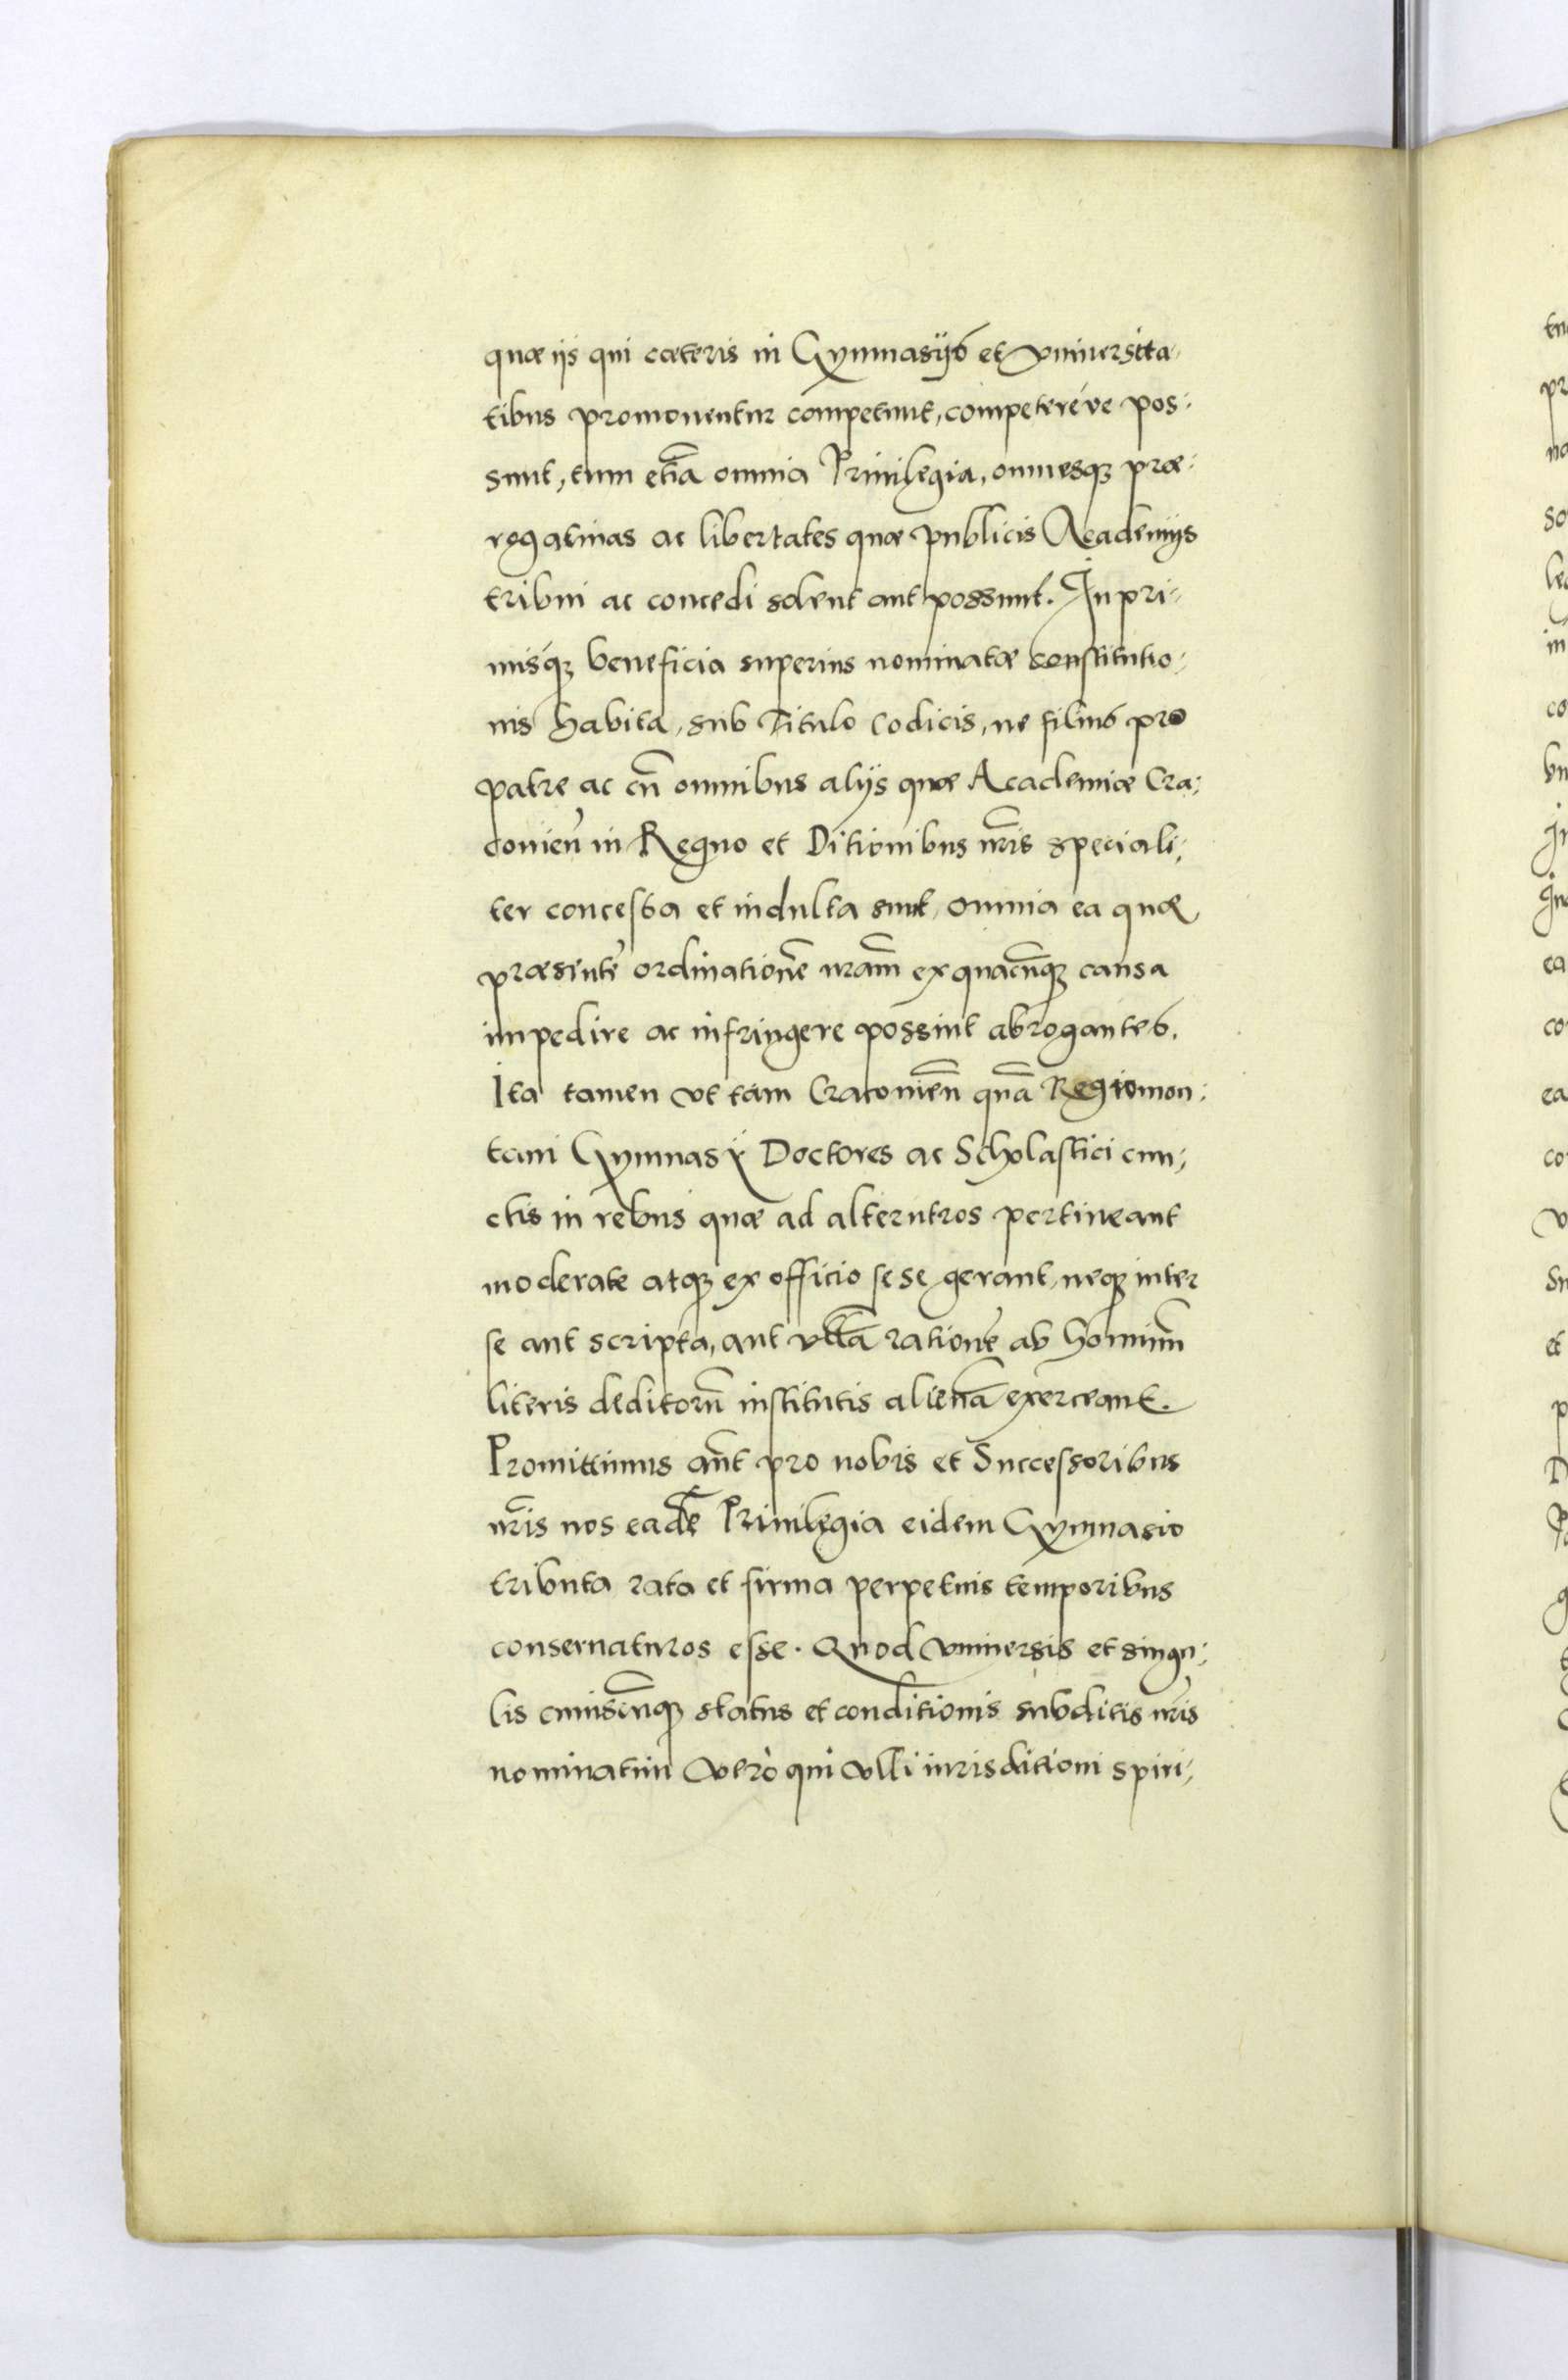 quæ ijs qui cæteris in Gymnasijs et vniuersita,
tibus promouentur competunt, competereúe pos:
sunt, tum etiã omnia Priuilegia, omnesqꝫ præ:
rogatiuas ac libertates quæ publicis Academijs
tribui ac concedi solent aut possunt. In pri,
misq́ꝫ beneficia superius nominatæ constitutio:
nis habita, sub Titulo Codicis, ne filius pro
patre ac cũ omnibus alijs quæ Academiæ Cra:
couieñ in Regno et Ditionibus nr̃is speciali;
ter concessa et indulta sunt, omnia ea quæ
præsentẽ ordinationẽ nr̃am ex quacũqꝫ causa
impedire ac infringere possint abrogantes.
Ita tamen vt tam Cracouieñ quã Regiomon:
tani Gymnasij Doctores ac Scholastici cun;
ctis in rebus quæ ad alterutros pertineant
moderate atqꝫ ex officio sese gerant, neqꝫ inter
se aut scripta, aut vllã rationẽ ab hominũ
literis deditorũ institutis alienã exerceant.
Promittimus aũt pro nobis et Successoribus
nr̃is nos eadẽ Priuilegia eidem Gymnasio
tributa rata et firma perpetuis temporibus
conseruaturos esse. Quod vniuersis et singu;
lis cuiuscũqꝫ status et conditionis subditis nr̃is
nominatim verò qui vlli iurisditioni spiri;